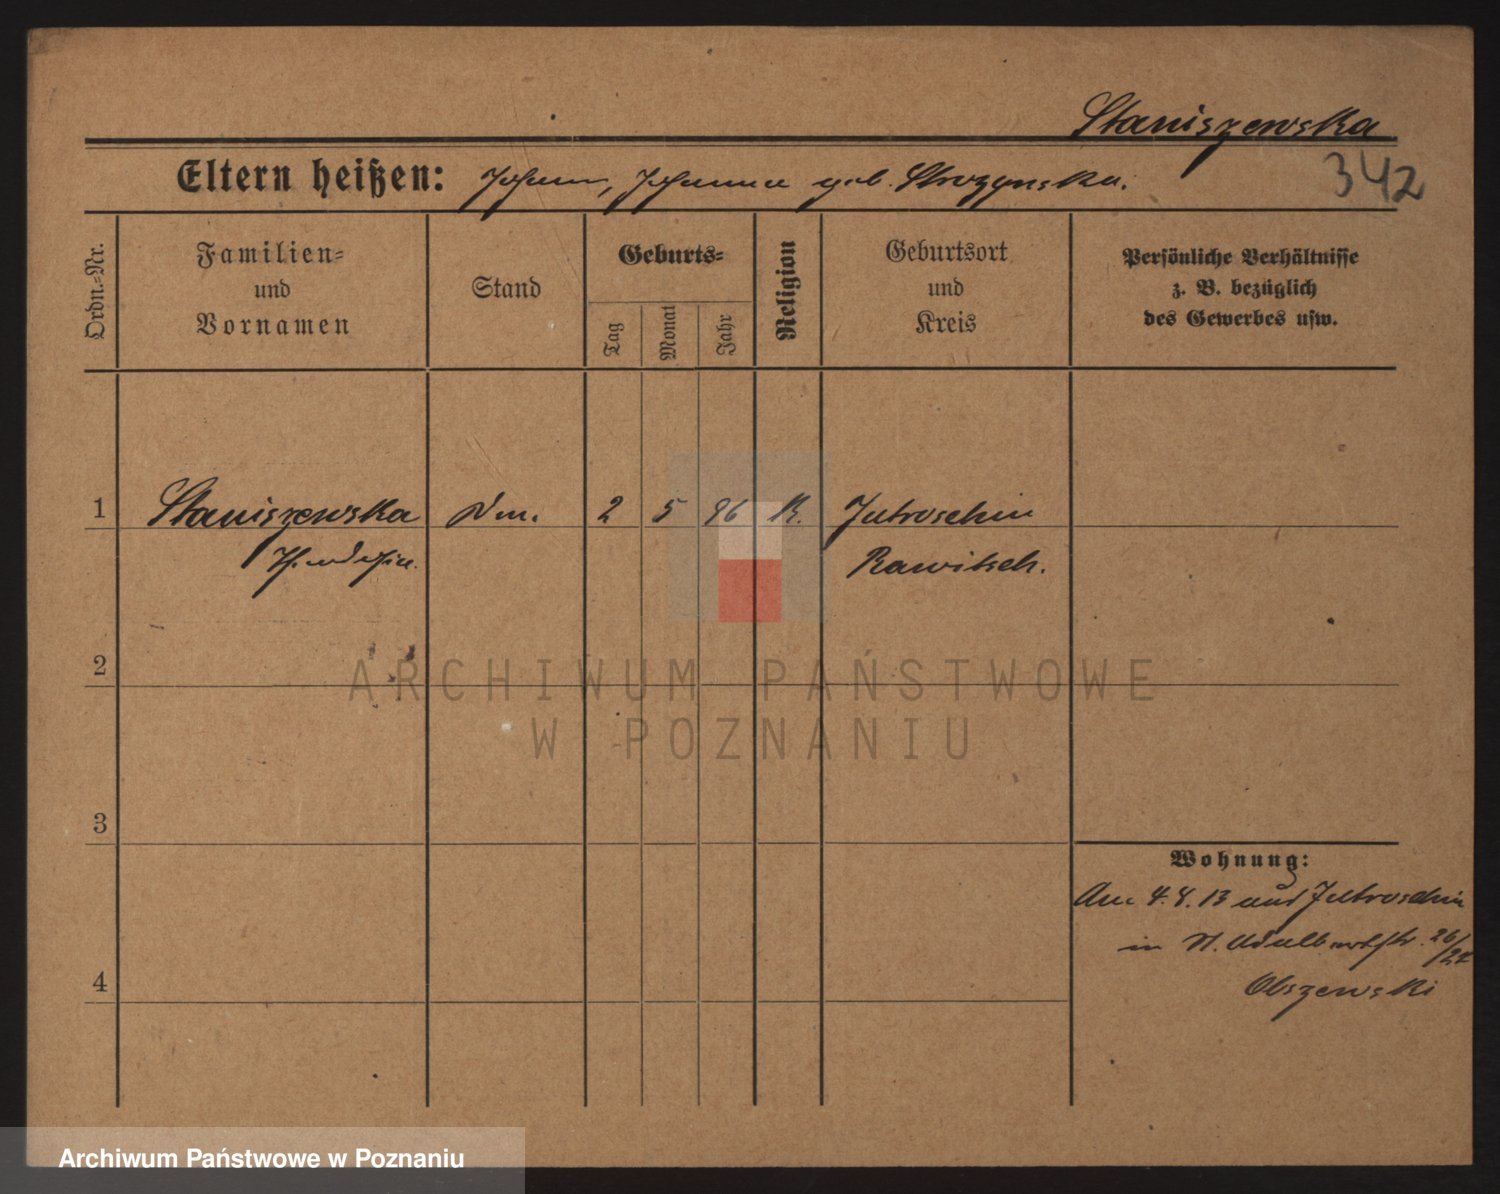 Staniszewska
342
Eltern heißen: Johann, Johanna geb. Strozynska.
Ordn.-Nr.
Familien-
und
Vornamen
Stand
Geburts-
Tag
Monat
Jahr
Religion
Geburtsort
und
Kreis
Persönliche Verhältnisse
z. B. bezüglich
des Gewerbes usw.
1 Staniszewska 2 5 96 K. Jutroschin
Rawitsch.
2
ARCHIWUM PAŃSTWOWE
W POZNANIU
3
Wohnung:
4.4.13 aus Jutroschin
in St. Adalbertstr. 26/27
4
Olszewski
Archiwum Państwowe w Poznaniu